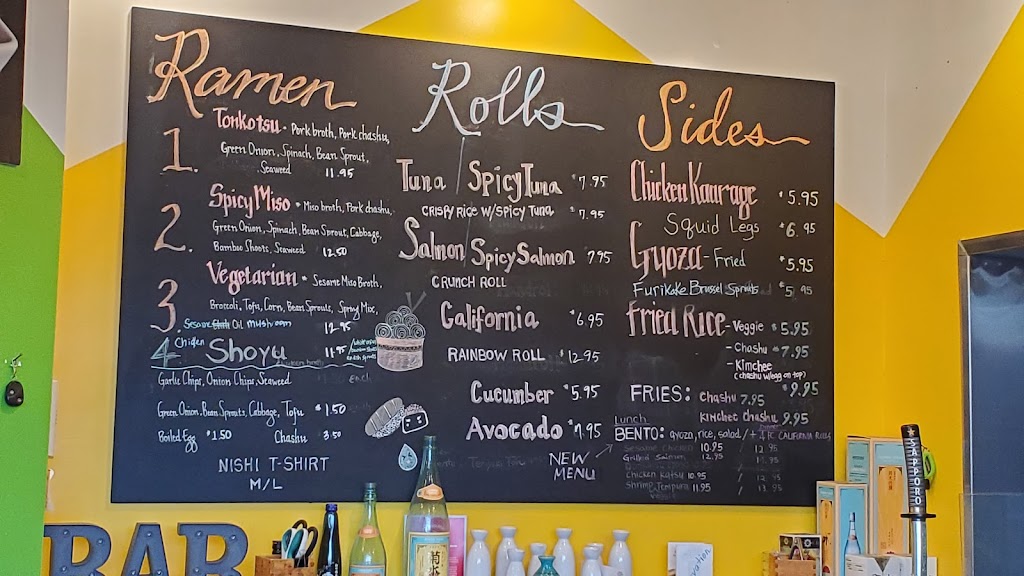 Ramen
1.
Tonkotsu • Pork broth, Pork chashu,
Green Onion, Spinach, Bean Sprout,
Seaweed 11.95
2.
Spicy Miso • Miso broth, Pork chashu,
Green Onion, Spinach, Bean Sprout, Cabbage,
Bamboo Shoots, Seaweed 12.50
3.
Vegetarian • Sesame Miso Broth,
Broccoli, Tofu, Corn, Bean Sprouts, Spring Mix,
Sesame Oil mushroom 12.95
4 Chicken Shoyu 11.95
Garlic Chips, Onion Chips, Seaweed each
Green Onion, Bean Sprouts, Cabbage, Tofu $1.50
Boiled Egg $1.50 Chashu 3.50
NISHI T-SHIRT
M/L
Rolls
Tuna Spicy Tuna $7.95
CRISPY RICE W/SPICY TUNA $7.95
Salmon Spicy Salmon 7.95
CRUNCH ROLL
California $6.95
RAINBOW ROLL $12.95
Cucumber $5.95
Avocado $4.95
NEW
MENU
Sides
Chicken Kaurage $5.95
Squid Legs $6.95
Gyoza - Fried $5.95
Furikake Brussel Sprouts $5.95
Fried Rice - Veggie $5.95
- Chashu $7.95
- Kimchee
(chashu w/egg on top) $9.95
FRIES: Chashu 7.95
KIMCHEE Chashu 9.95
Lunch
BENTO: gyoza, rice, salad / + 4 PC. CALIFORNIA ROLLS
10.95 / 12.95
Grilled Salmon 12.95
Chicken Katsu 10.95 / 12.95
Shrimp Tempura 11.95 / 13.95
BAR
SAPPORO